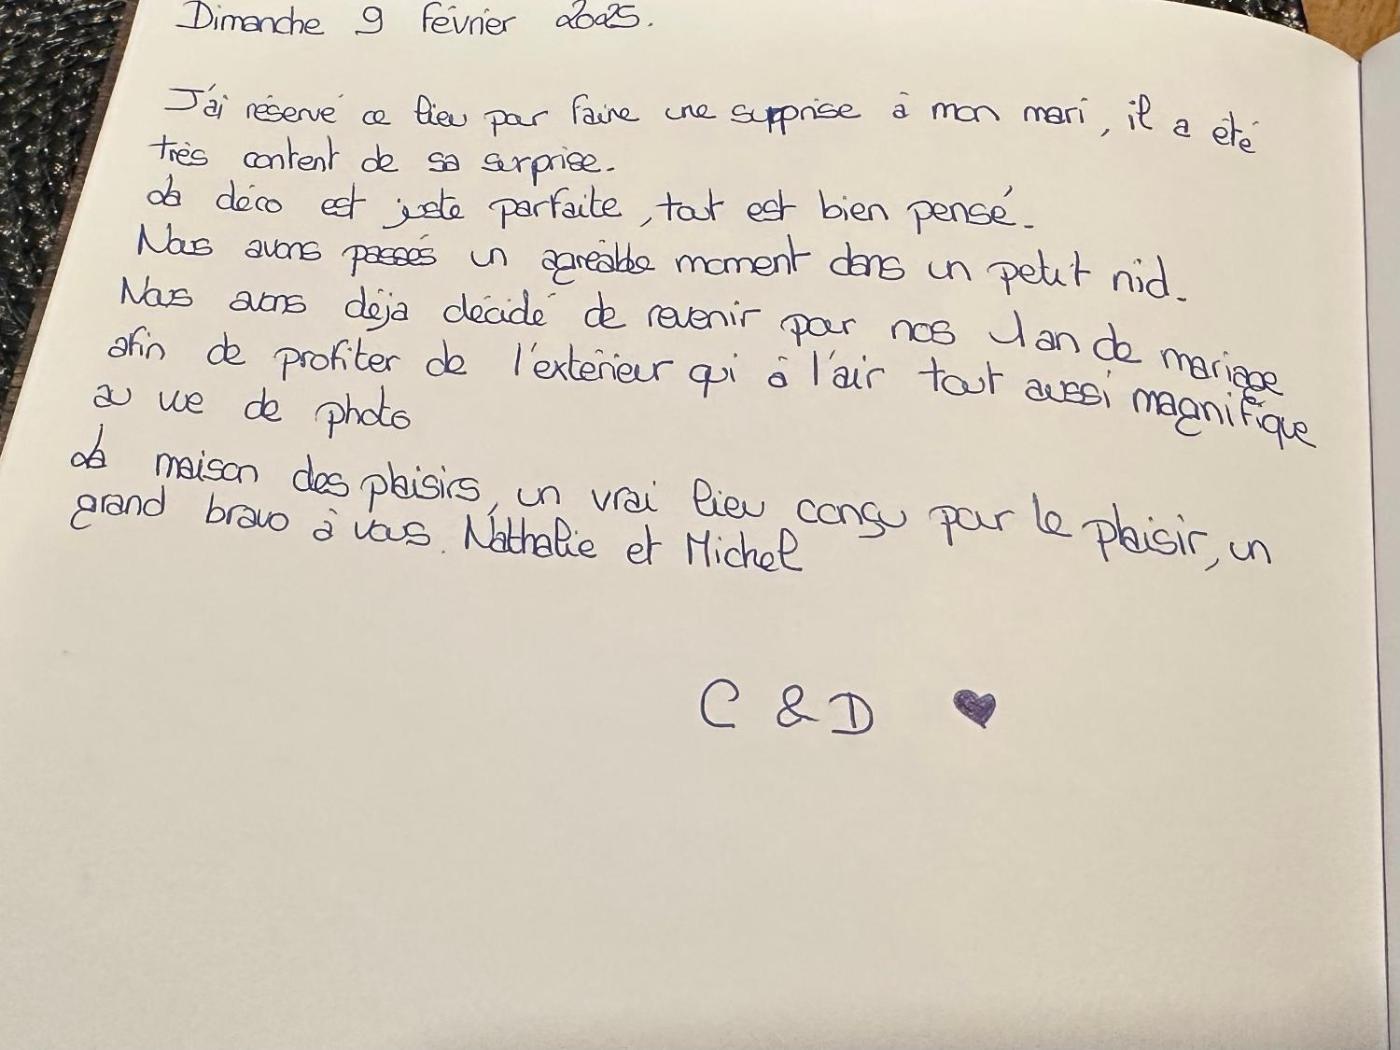 Dimanche 9 février 2025.
J'ai réservé ce lieu pour faire une surprise à mon mari, il a été
très content de sa surprise.
La déco est juste parfaite, tout est bien pensé.
Nous avons passés un agréable moment dans un petit nid.
Nous avons déja décidé de revenir pour nos 1 an de mariage
afin de profiter de l'extérieur qui à l'air tout aussi magnifique
au vue de photo
La maison des plaisirs, un vrai lieu conçu pour le plaisir, un
grand bravo à vous. Nathalie et Michel
C & D ♥